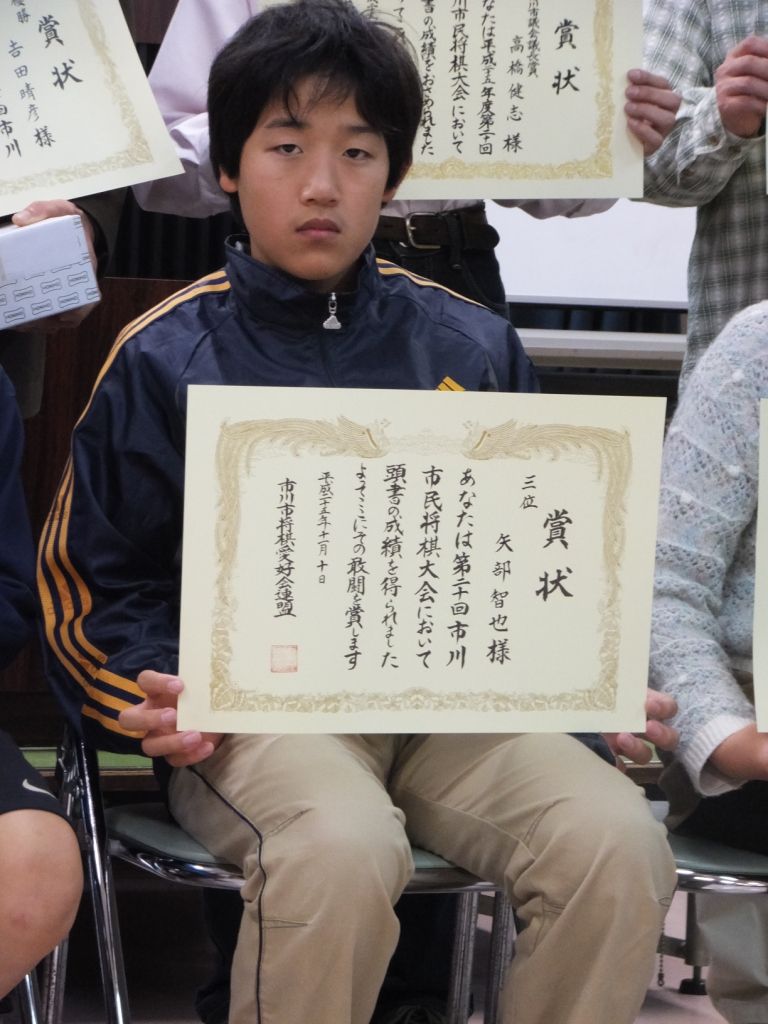 賞状
三位
矢部智也様
あなたは第二十回市川
市民将棋大会において
頭書の成績を得られました
よってここにその敢闘を賞します
平成二十五年十一月十日
市川市将棋愛好会連盟
賞状
優勝
吉田晴彦様
回市川
賞状
市議会議長賞
高橋健志様
なたは平成二十五年度第二十回
川市民将棋大会において
書の成績をおさめられました